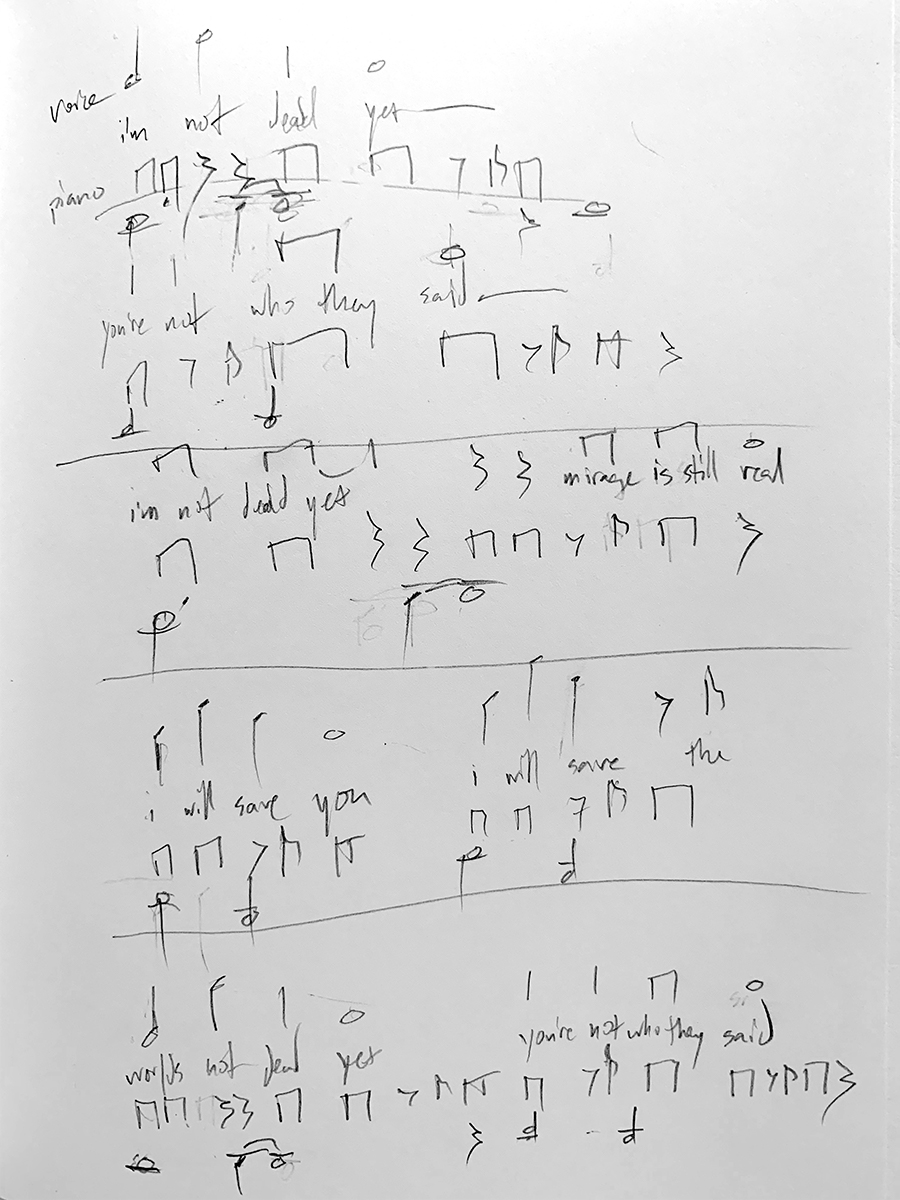 voice i'm not dead yet
piano
you're not who they said
i'm not dead yet mirage is still real
i will save you i will save the
world's not dead yet you're not who they said